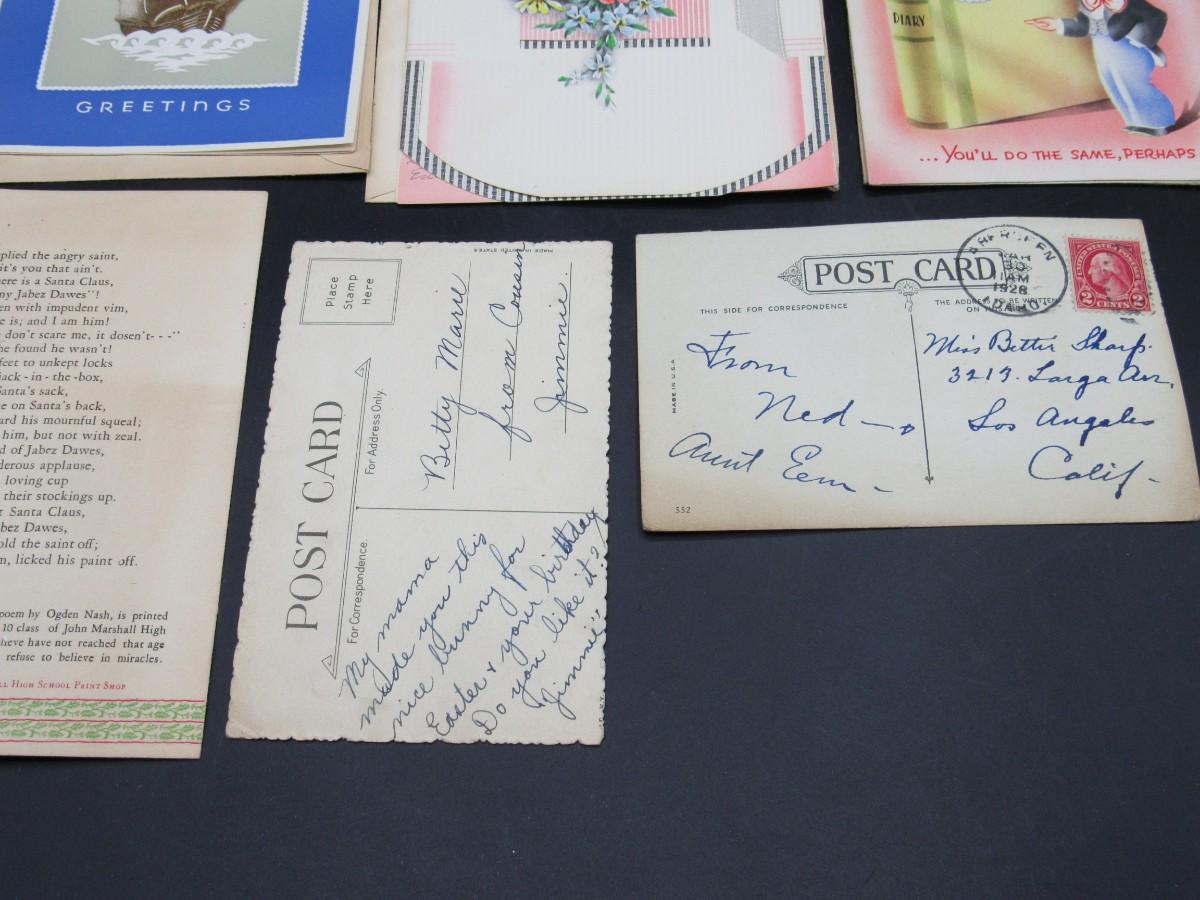 GREETINGS
DIARY
... YOU'LL DO THE SAME, PERHAPS
plied the angry saint,
it's you that ain't.
here is a Santa Claus,
ny Jabez Dawes"!
en with impudent vim,
e is; and I am him!
don't scare me, it dosen't---"
he found he wasn't!
feet to unkept locks
ack-in-the-box,
Santa's sack,
e on Santa's back,
ard his mournful squeal;
him, but not with zeal.
d of Jabez Dawes,
derous applause,
loving cup
their stockings up.
t Santa Claus,
bez Dawes,
old the saint off;
m, licked his paint off.
poem by Ogden Nash, is printed
10 class of John Marshall High
heve have not reached that age
refuse to believe in miracles.
LL HIGH SCHOOL PRINT SHOP
MADE IN UNITED STATES
Place
Stamp
Here
POST CARD
For Address Only.
For Correspondence.
Betty Marie
from Cousin
Jimmie.
My mama
made you this
nice bunny for
Easter & your birthday
Do you like it?
"Jimmie"
POST CARD
THIS SIDE FOR CORRESPONDENCE
THE ADDRESS TO BE WRITTEN
ON THIS
ABERDEEN
MAR
30
1AM
1928
IDAHO
UNITED STATES POSTAGE
2 CENTS 2
MADE IN U.S.A
From
Ned -
Aunt Eem -
Miss Bettie Sharp.
3219. Larga Ave,
Los Angeles
Calif -
552